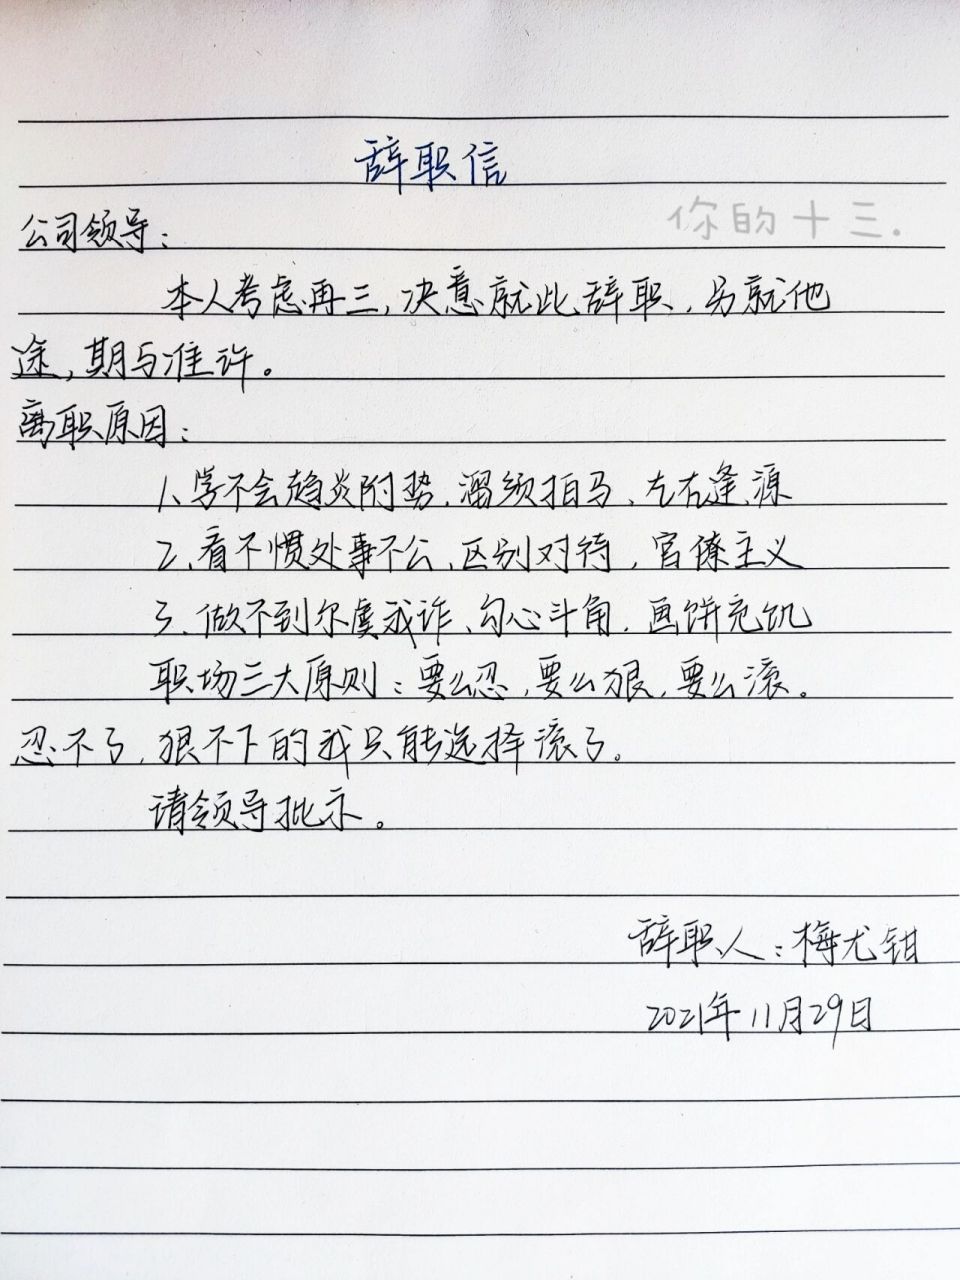 辞职信
你的十三.
公司领导：
本人考虑再三，决意就此辞职，另就他
途，期与准许。
离职原因：
1、学不会趋炎附势、溜须拍马、左右逢源
2、看不惯处事不公、区别对待，官僚主义
3、做不到尔虞我诈、勾心斗角，画饼充饥
职场三大原则：要么忍，要么狠，要么滚。
忍不了，狠不下的我只能选择滚了。
请领导批示。
辞职人：梅尤钳
2021年11月29日